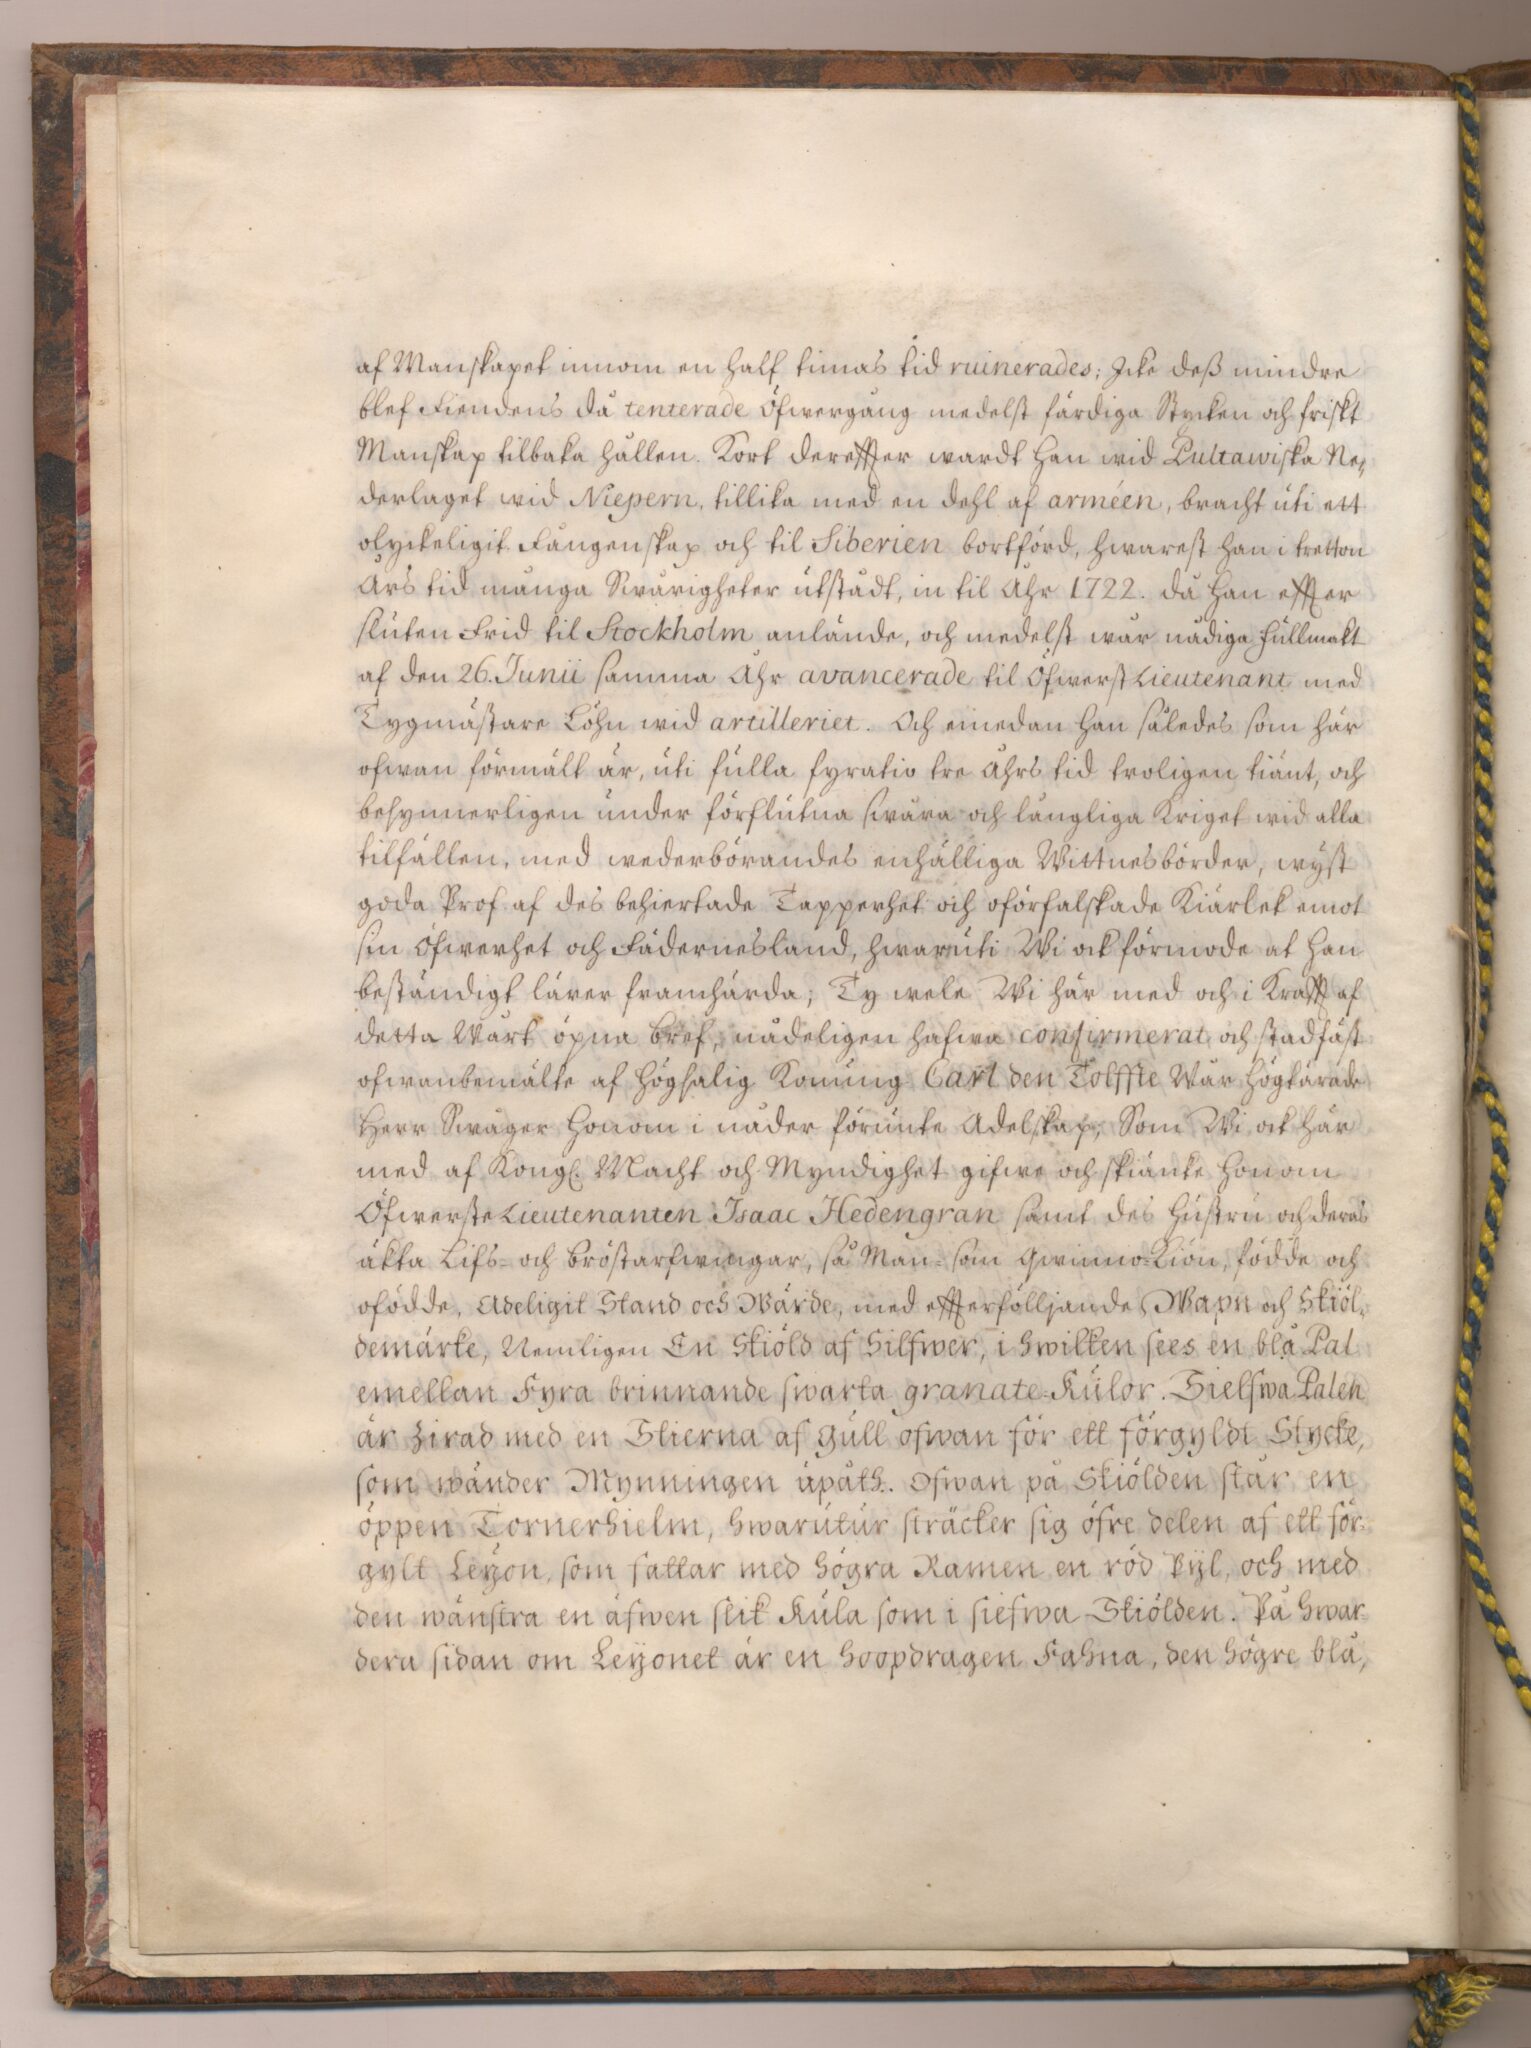 af Manskapet innom en half timas tid ruinerades; Icke deß mindre
blef Fiendens då tenterade Öfwergång medelst färdiga Stycken och friskt
Manskap tilbaka hållen. Kort dereffter wardt han wid Pultawiska Ne-
derlaget wid Niepern, tillika med en dehl af arméen, bracht uti ett
olyckeligit Fångenskap och til Siberien bortförd, hwarest han i tretton
Års tid många Swårigheter utstådt, in til Åhr 1722. då han effter
sluten Frid til Stockholm anlände, och medelst wår nådiga Fullmakt
af den 26. Junii samma Åhr avancerade til Öfwerst Lieutenant med
Tygmästare Löhn wid artilleriet. Och emedan han således som här
ofwan förmält är, uti fulla fyratio tre Åhrs tid troligen tiänt, och
besynnerligen under förflutna swåra och långliga Kriget wid alla
tilfällen, med wederbörandes enhälliga Wittnesbörder, wyst
goda Prof af des behiertade Tapperhet och oförfalskade Kiärlek emot
sin Öfwerhet och Fädernesland, hwaruti Wi ock förmode at han
beständigt lärer framhärda; Ty wele Wi här med och i Krafft af
detta Wårt öpna bref, nådeligen hafwa confirmerat och stadfäst
ofwanbemälte af Högsalig Konung Carl den Tolffte Wår Högtärade
Herr Swåger honom i nåder förunte Adelskap; Som Wi ock här
med af Kongl. Macht och Myndighet gifwe och skiänke honom
Öfwerste Lieutenanten Isaac Hedengran samt des Hustru och deras
äkta Lifs- och bröstarfwingar, så Man- som Qwinno-Kiön, födde och
ofödde, Adeligit Stand och Wärde, med effterfölljande Wapn och Skiöl-
demärke, Nemligen En Skiöld af Silfwer, i hwilken sees en blå Pal
emellan Fyra brinnande swarta granate-Kulor. Sielfwa Palen
är Zirad med en Stierna af Gull ofwan för ett förgyldt Stycke,
som wänder Mynningen upåth. Ofwan på Skiölden står en
öppen Tornerhielm, hwarutur sträcker sig öfre delen af ett för-
gylt Leyon, som fattar med högra Ramen en röd Pyl, och med
den wänstra en äfwen slik Kula som i siefwa Skiölden. På hwar-
dera sidan om Leyonet är en hoopdragen Fahna, den högre blå,